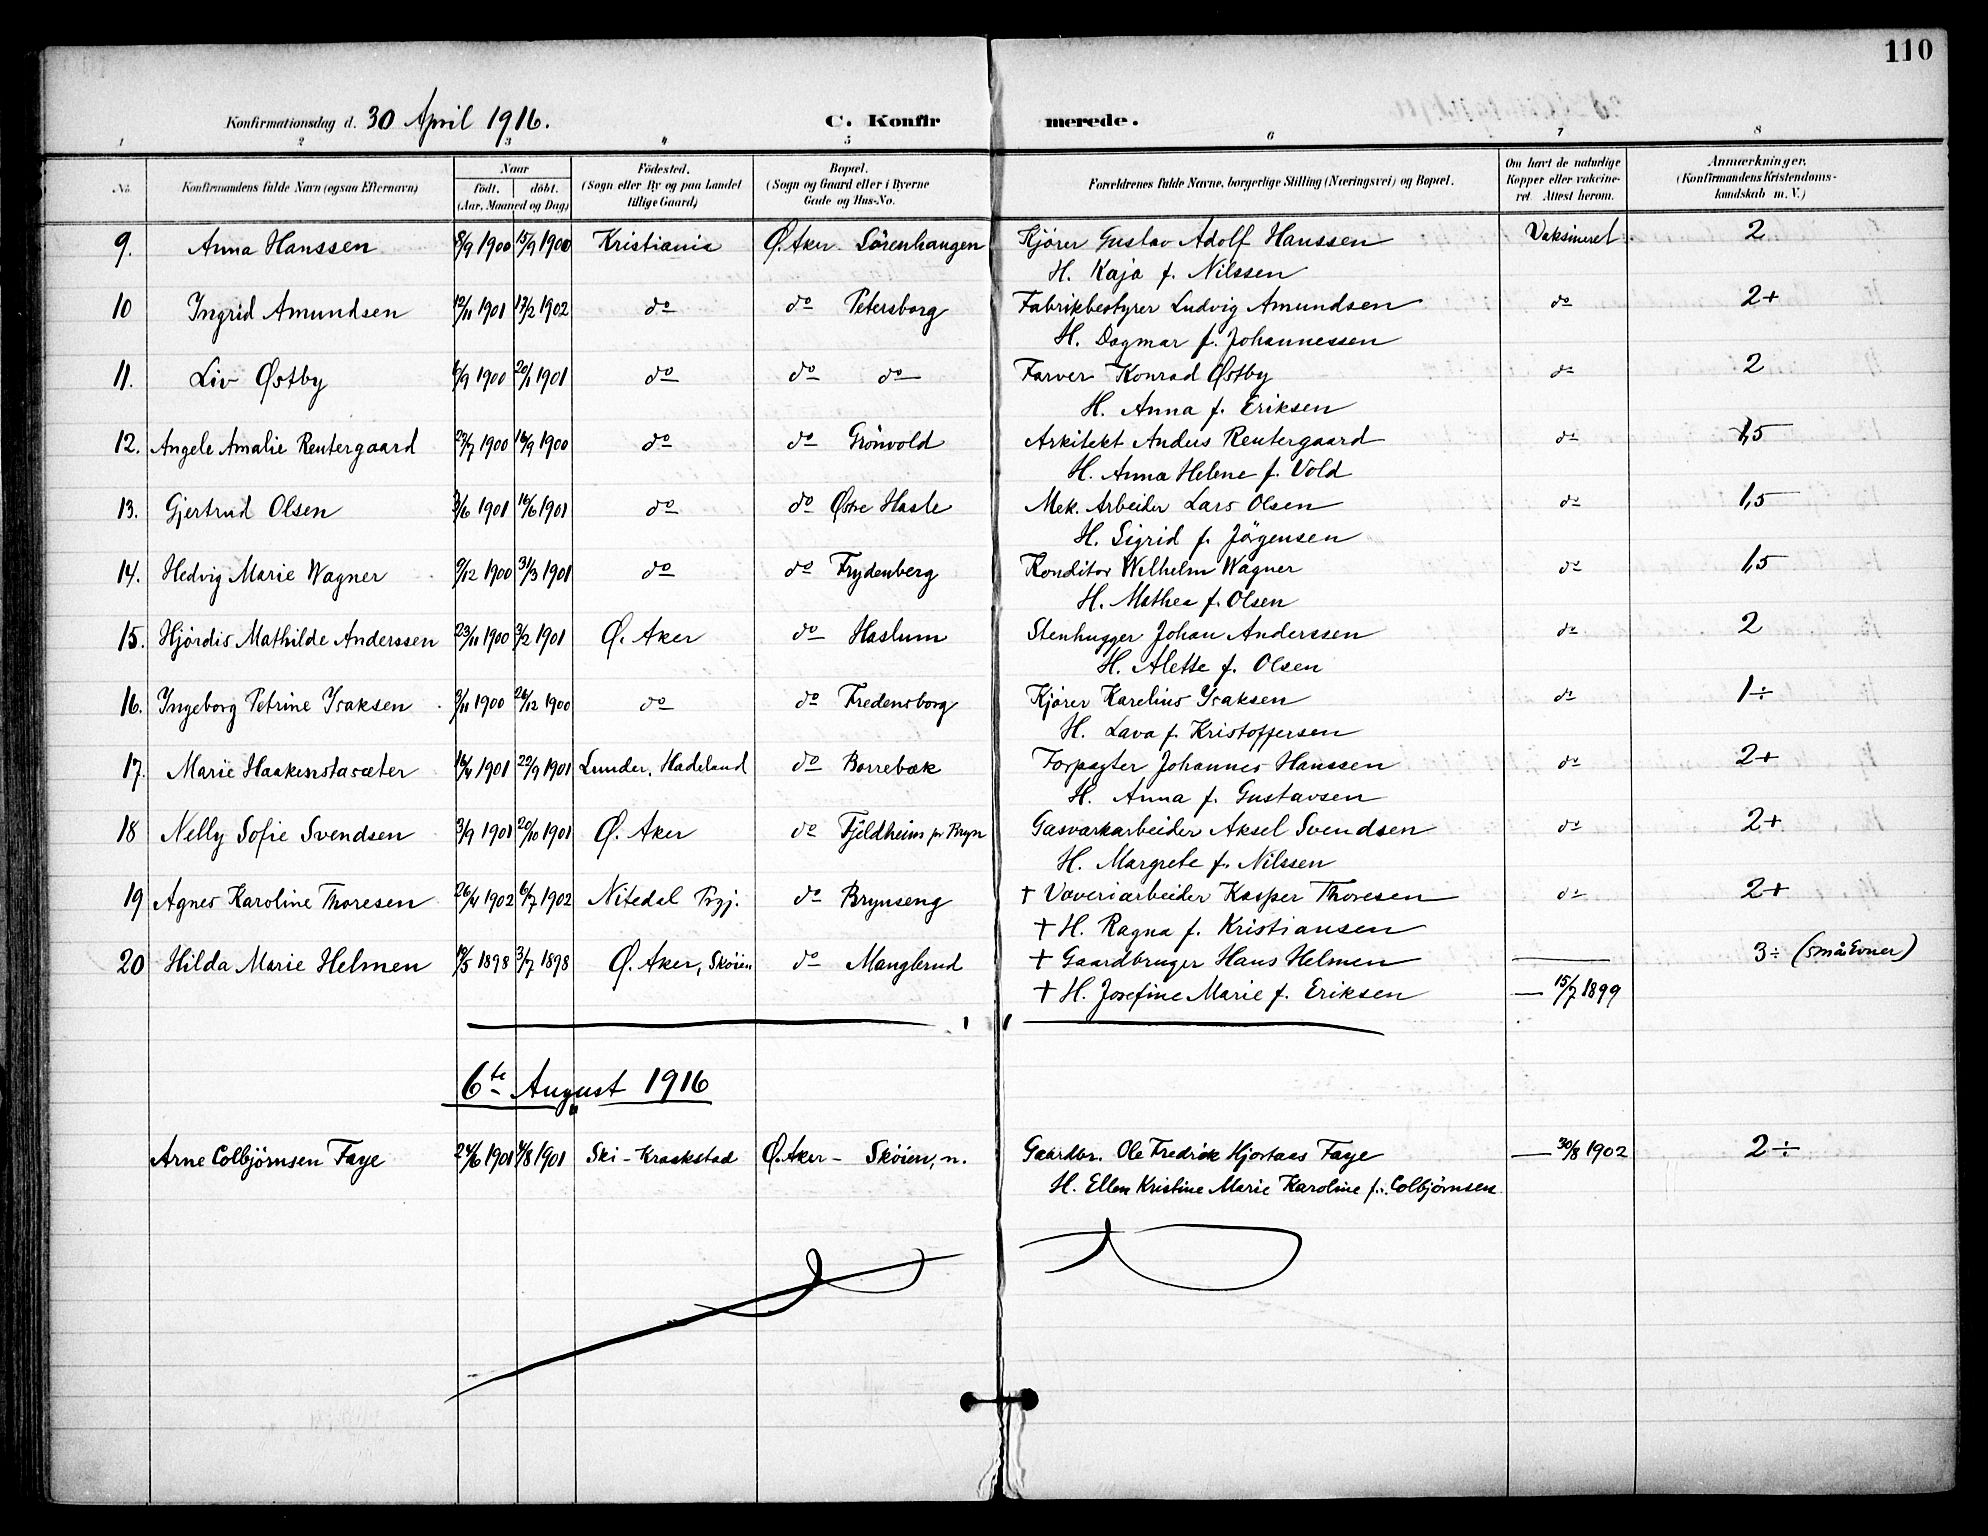 110
Konfirmationsdag d. 30 April 1916. C. Konfirmerede.
1 2 3 4 5 6 7 8
No. Konfirmandens fulde Navn (ogsaa Efternavn) Naar födt. döbt. (Aar, Maaned og Dag) Födested. (Sogn eller By og paa Landet tillige Gaard) Bopæl. (Sogn og Gaard eller i Byerne Gade og Hus-No. Forældrenes fulde Navne, borgerlige Stilling (Næringsvei) og Bopæl. Om havt de naturlige Kopper eller vakcineret. Attest herom. Anmærkninger. (Konfirmandens Kristendomskundskab m. V.)
9. Anna Hanssen 8/9 1900 15/9 1900 Kristiania Ø. Aker Sörenhaugen Kjörer Gustav Adolf Hanssen Vaksineret 2
H. Kaja f. Nilssen
10 Ingrid Amundsen 12/11 1901 13/2 1902 do do Petersborg Fabrikbestyrer Ludvig Amundsen do 2+
H. Dagmar f. Johannessen
11. Liv Østby 6/9 1900 20/1 1901 do do do Farver Konrad Østby do 2
H. Anna f. Eriksen
12. Angele Amalie Reutergaard 27/7 1900 16/9 1900 do do Grönvold Arkitekt Anders Reutergaard do 1,5
H. Anna Helene f. Vold
13. Gjertrud Olsen 3/6 1901 16/6 1901 do do Østre Hasle Mek. Arbeider Lars Olsen do 1,5
H. Sigrid f. Jörgensen
14. Hedvig Marie Wagner 9/12 1900 31/3 1901 do do Frydenberg Konditor Wilhelm Wagner do 1,5
H. Mathea f. Olsen
15. Hjördis Mathilde Anderssen 23/11 1900 3/2 1901 Ø. Aker do Haslum Stenhugger Johan Anderssen do 2
H. Alette f. Olsen
16. Ingeborg Petrine Isaksen 3/11 1900 26/12 1900 do do Fredensborg Kjörer Karelius Isaksen do 1÷
H. Lava f. Kristoffersen
17. Marie Haakenstasæter 16/4 1901 29/9 1901 Lunder, Hadeland do Borrebæk Forpagter Johannes Hanssen do 2+
H. Anna f. Gustavsen
18 Nelly Sofie Svendsen 3/9 1901 20/10 1901 Ø. Aker do Fjeldheim pr Bryn Gasværkarbeider Aksel Svendsen do 2+
H. Margrete f. Nilssen
19 Agnes Karoline Thoresen 26/4 1902 6/7 1902 Nitedal Prgj. do Brynseng + Væveriarbeider Kasper Thoresen do 2+
+ H. Ragna f. Kristiansen
20 Hilda Marie Helmen 12/5 1898 3/7 1898 Ø. Aker, Skøien do Manglerud + Gaardbruger Hans Helmen — 3÷ (små Evner)
+ H. Josefine Marie f. Eriksen — 15/7 1899
6te August 1916
Arne Colbjørnsen Faye 24/6 1901 4/8 1901 Ski - Kraakstad Ø. Aker - Skøien, n. Gaardbr. Ole Fredrik Hjortaas Faye — 30/8 1902 2÷
H. Ellen Kristine Marie Karoline f. Colbjørnsen